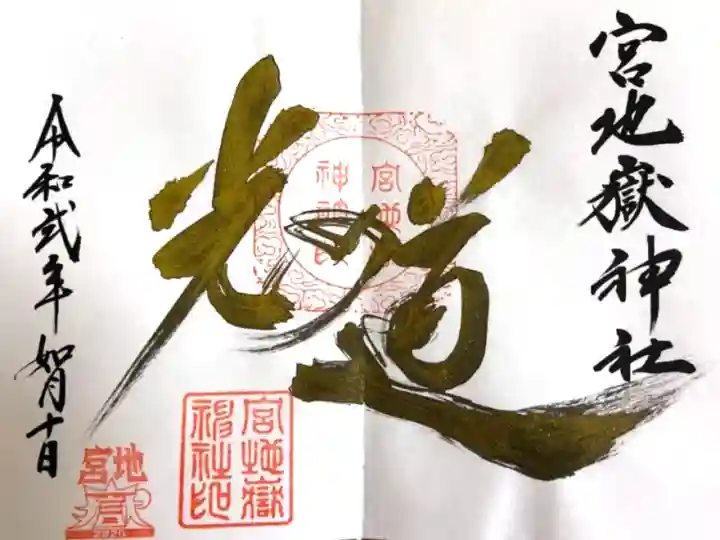 宮地嶽神社
光の道
宮地嶽神社印
宮地嶽神社印
令和弐年如月十日
宮地
2020